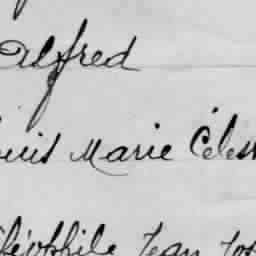 Alfred
ouis Marie Céles
Théophile Jean Jos